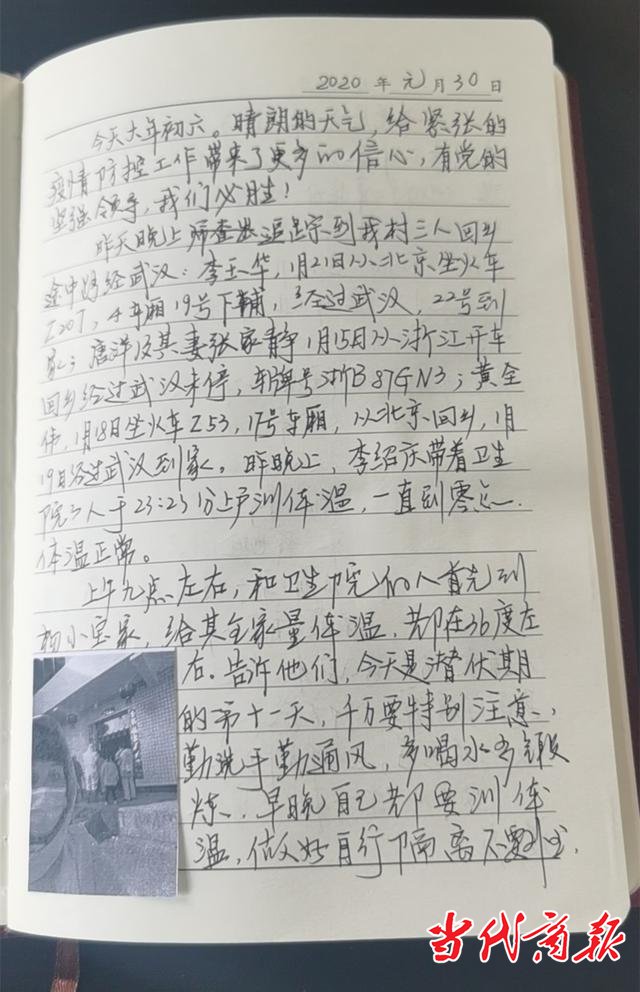 2020 年 元月 30 日
今天大年初六。晴朗的天气,给紧张的
疫情防控工作带来了更多的信心,有党的
坚强领导,我们必胜!
昨天晚上筛查出追踪到我村三人回乡
途中路经武汉:李玉华,1月21日从北京坐火车
Z207,4车厢19号下铺,经过武汉,22号到
家;唐洋及其妻张家静1月15日从浙江开车
回乡经过武汉未停,车牌号浙B87GN3;黄全
伟,1月18日坐火车Z53,17号车厢,从北京回乡,1月
19日经过武汉到家。昨晚上,李绍庆带着卫生
院3人于23:23分上户测体温,一直到零点.
体温正常。
上午九点左右,和卫生院的人首先到
小宝家,给其全家量体温,都在36度左
右.告诉他们,今天是潜伏期
的第十一天,千万要特别注意,
勤洗手勤通风,多喝水多锻
炼,早晚自己都要测体
温,做好自行隔离不要外出.
当代商报